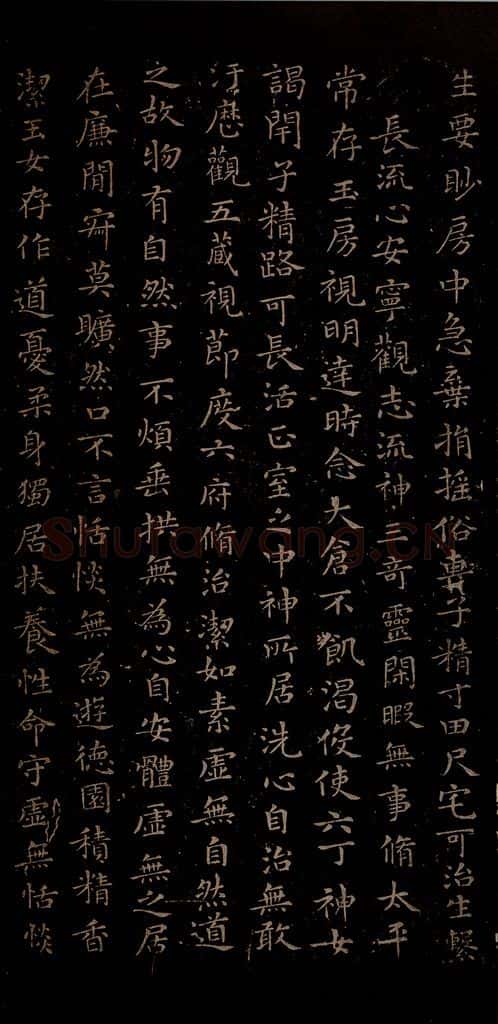 生要眇房中急棄捐搖俗專子精寸田尺宅可治生繫
長流心安寧觀志流神三奇靈閑暇無事脩太平
常存玉房視明達時念大倉不飢渴役使六丁神女
謁閉子精路可長活正室之中神所居洗心自治無敢
汙歷觀五藏視節度六府脩治潔如素虛無自然道
之故物有自然事不煩垂拱無為心自安體虛無之居
在廉間寂莫曠然口不言恬惔無為遊德園積精香
潔玉女存作道憂柔身獨居扶養性命守虛無恬惔
Shufawang.CN